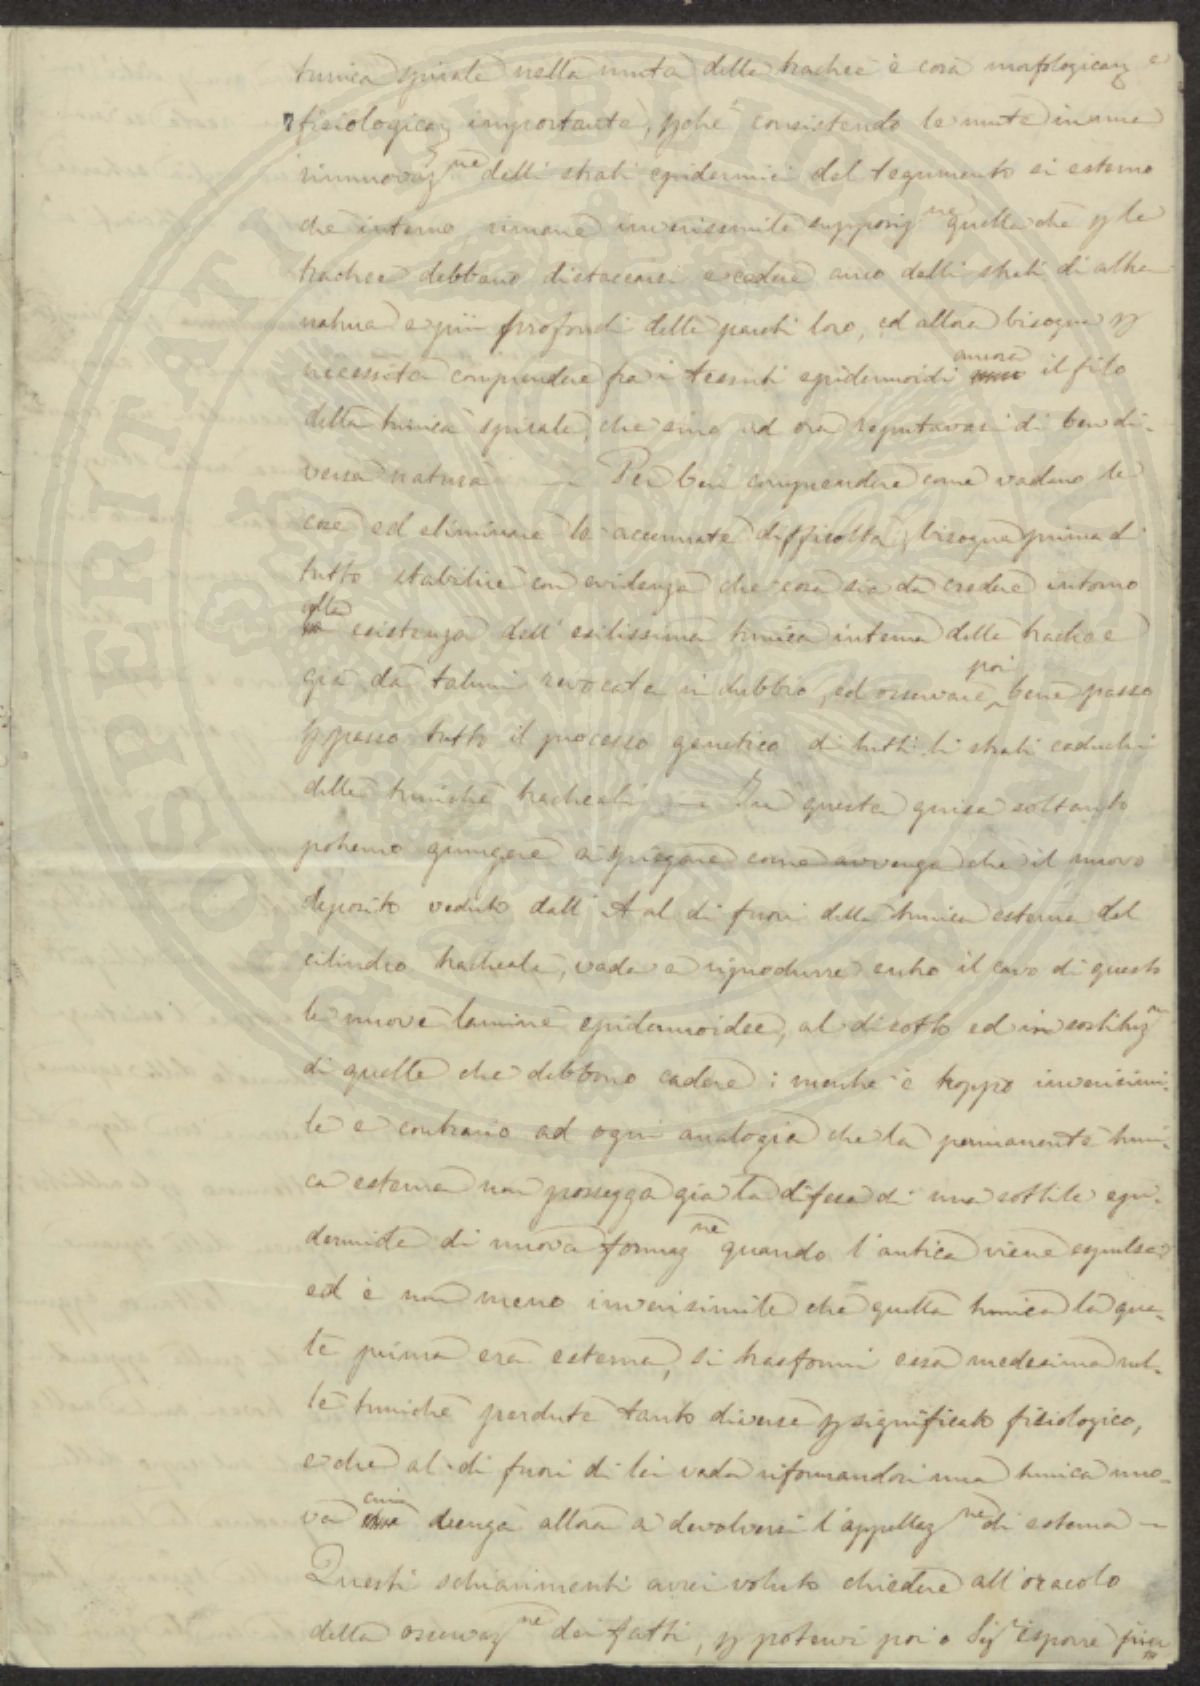 tunica spirale nella muta delle trachee è cosa morfologicamz e
fisiologicamz importante, pchè consistendo le mute in una
rinnuovaz ne delli strati epidermici del tegumento sì esterno
che interno, rimane inverisimile supporsi quella che p le
trachee debbano distaccarsi e cadere anco delli strati di altra
natura e più profondi delle pareti loro, ed allora bisogna p
necessità comprendere fra i tessuti epidermoidi ancora il filo
della tunica spirale, che sino ad ora reputavasi di ben di-
versa natura — Per ben comprendere come vadano le
cose ed eliminare le accennate difficoltà, bisogna prima di
tutto stabilire con evidenza che cosa sia da credere intorno
alla esistenza dell'esilissima tunica interna delle trachee
già da taluni revocata in dubbio, ed osservare poi bene passo
p passo tutto il processo genetico di tutti li strati caduchi
delle tuniche tracheali — In questa guisa soltanto
potremo giungere a spiegare come avvenga che il nuovo
deposito veduto dall'A al di fuori della tunica esterna del
cilindro tracheale, vada a riprodurre entro il cavo di questo
le nuove lamine epidermoidee, al disotto ed in sostituz ne
di quelle che debbono cadere: mentre è troppo inverisimi-
le e contrario ad ogni analogia che la permanente tuni-
ca esterna non possegga già la difesa di una sottile epi-
dermide di nuova formaz ne quando l'antica viene espulsa:
ed è non meno inverisimile che quella tunica la qua-
le prima era esterna, si trasformi essa medesima nel-
le tuniche perdute tanto diverse p significato fisiologico,
e che al di fuori di lei vada riformandosi una tunica nuo-
va cui venga allora a devolversi l'appellaz ne di esterna —
Questi schiarimenti avrei voluto chiedere all'oracolo
della osservaz ne dei fatti, p potervi poi o Sigri esporre